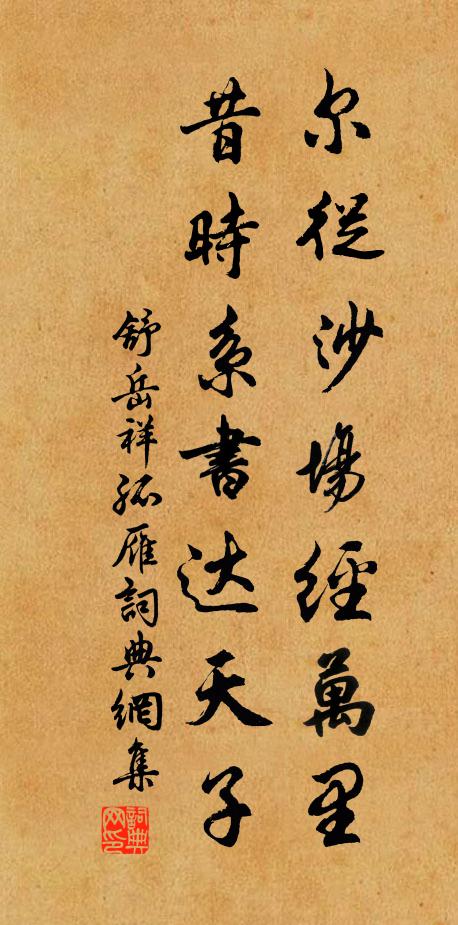 尔從沙場經萬里
昔時系書达天子
舒岳祥孤雁詞典網集
詞典网印